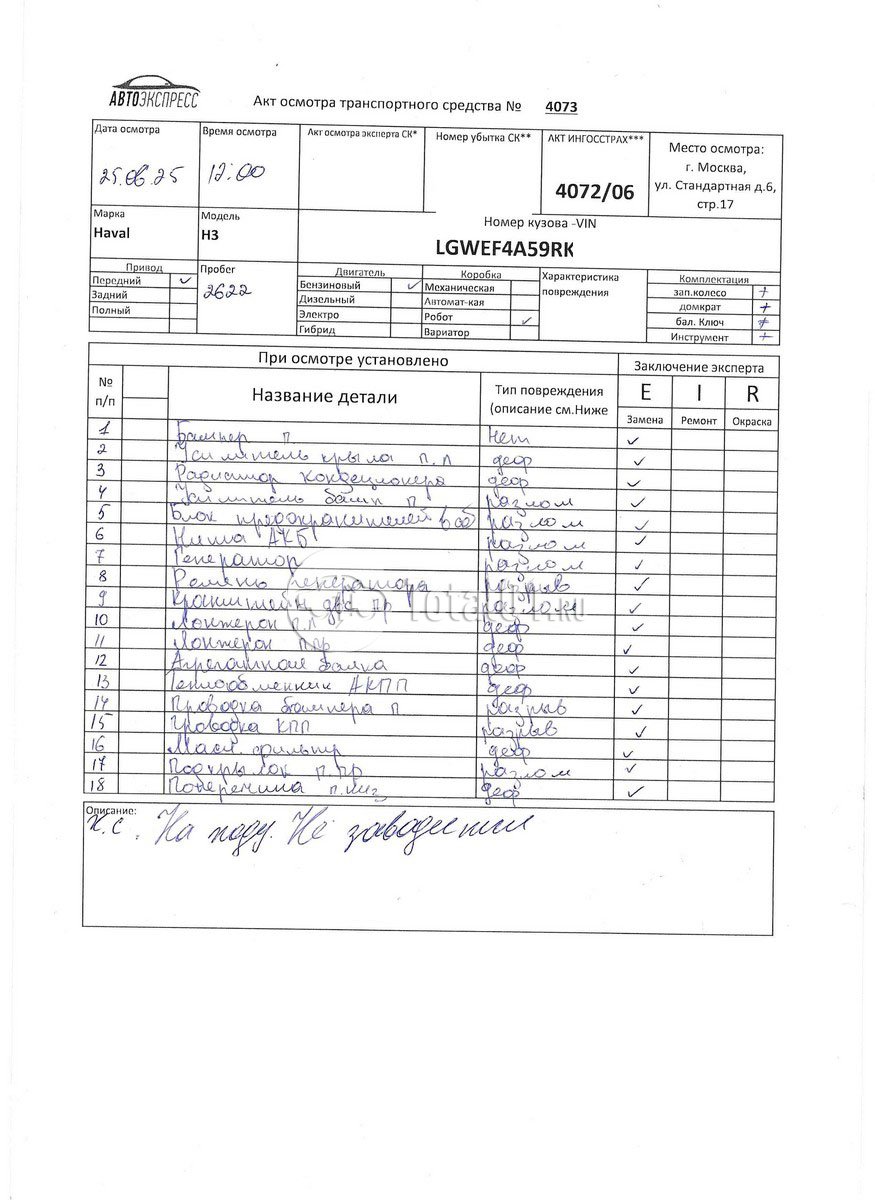 АВТОЭКСПРЕСС
Акт осмотра транспортного средства № 4073
Дата осмотра
25.06.25
Время осмотра
12:00
Акт осмотра эксперта СК*
Номер убытка СК**
АКТ ИНГОССТРАХ***
4072/06
Место осмотра:
г. Москва,
ул. Стандартная д.6,
стр.17
Марка
Haval
Модель
H3
Номер кузова -VIN
LGWEF4A59RK
Привод
Передний ✓
Задний
Полный
Пробег
2622
Двигатель
Бензиновый ✓
Дизельный
Электро
Гибрид
Коробка
Механическая
Автомат-кая
Робот ✓
Вариатор
Характеристика
повреждения
Комплектация
зап.колесо +
домкрат +
бал. Ключ +
Инструмент +
При осмотре установлено
Заключение эксперта
№
п/п
Название детали
Тип повреждения
(описание см.Ниже
E I R
Замена Ремонт Окраска
1 Бампер п нет ✓
2 Усилитель крыла п.л деф ✓
3 Радиатор кондиционера деф ✓
4 Усилитель бамп п разлом ✓
5 Блок предохранителей разлом ✓
6 Ниша АКБ разлом ✓
7 Генератор разлом ✓
8 Ремень генератора разрыв ✓
9 Кронштейн двс пр разлом ✓
10 Лонжерон п.л деф ✓
11 Лонжерон пр деф ✓
12 Агрегатная балка деф ✓
13 Теплообменник АКПП деф ✓
14 Проводка бампера п разрыв ✓
15 Проводка КПП разрыв ✓
16 Масл. фильтр деф ✓
17 Подкрылок п.пр разлом ✓
18 Поперечина п.ниж деф ✓
Описание:
х.с. На ходу. Не заводится